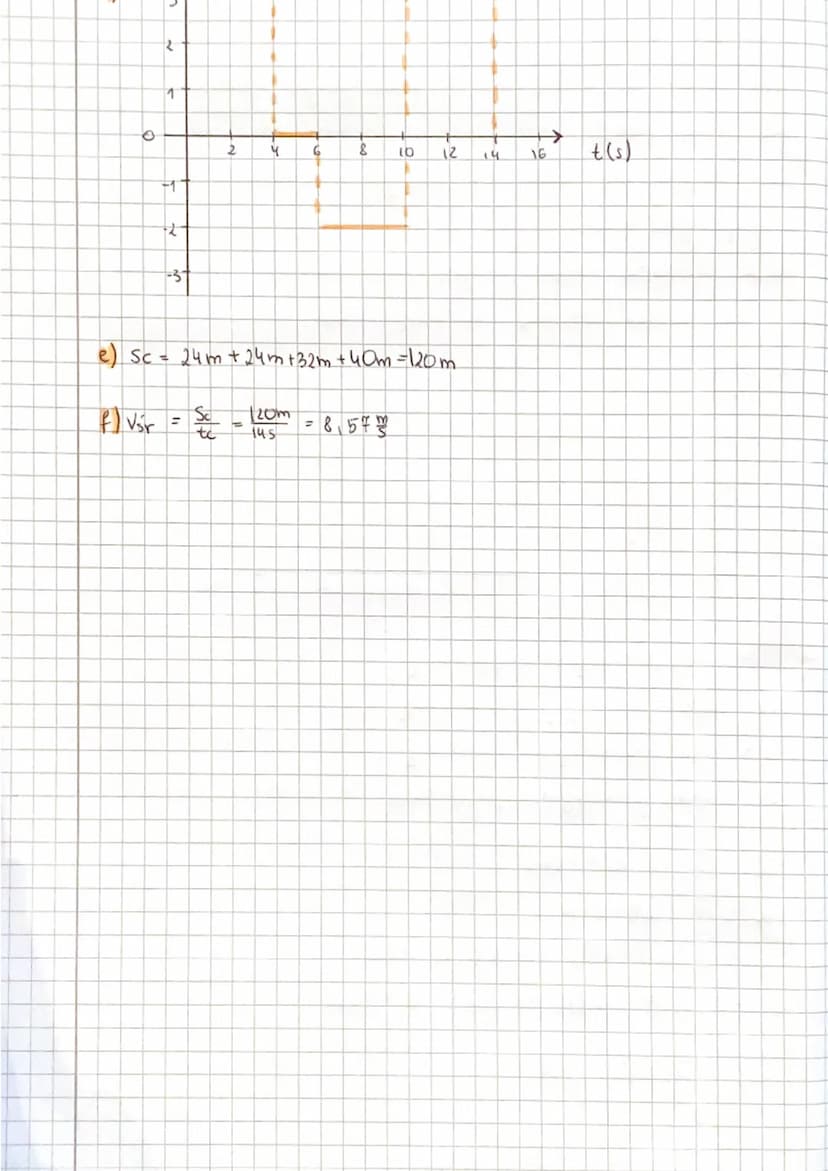 3
2
1
0
2 4 6 8 10 12 14 16 t(s)
-1
-2
-3
e) Sc = 24m + 24m + 32m + 40m = 120m
f) Vśr = Sc/tc = 120m/14s = 8,57 m/s